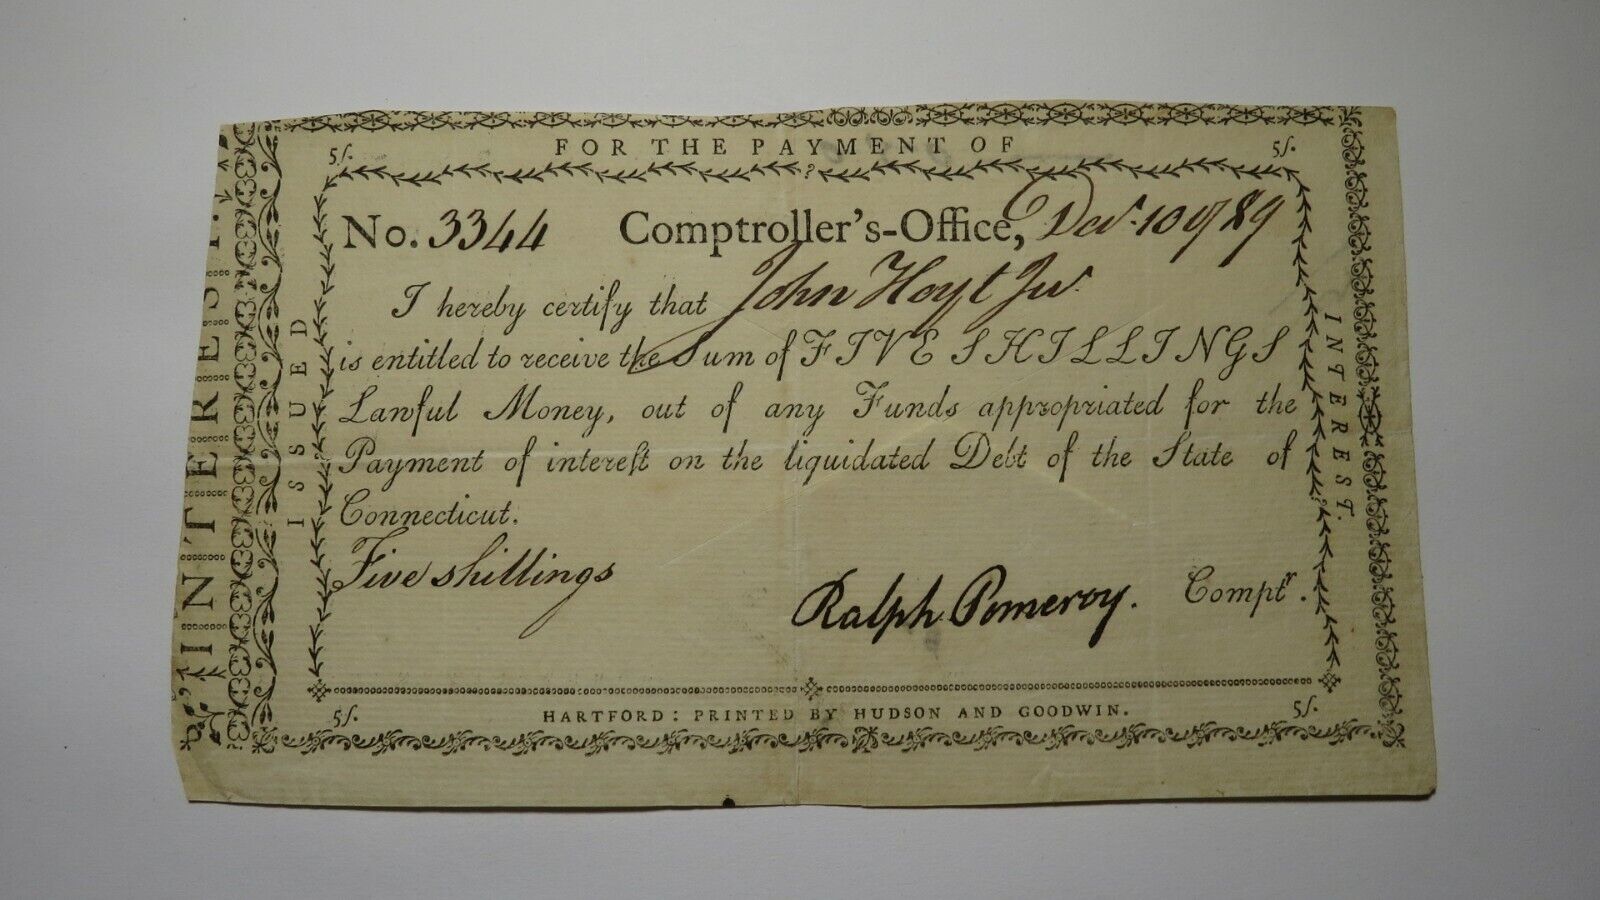 FOR THE PAYMENT OF
5/. 5/.
No. 3344 Comptroller's-Office, Decr. 10 1789
I hereby certify that John Hoyt Jur
is entitled to receive the Sum of FIVE SHILLINGS
Lawful Money, out of any Funds appropriated for the
Payment of intereſt on the liquidated Debt of the State of
Connecticut.
Five shillings
Ralph Pomeroy. Comptr.
5/. 5/.
HARTFORD: PRINTED BY HUDSON AND GOODWIN.
ISSUED
INTEREST.
INTEREST.